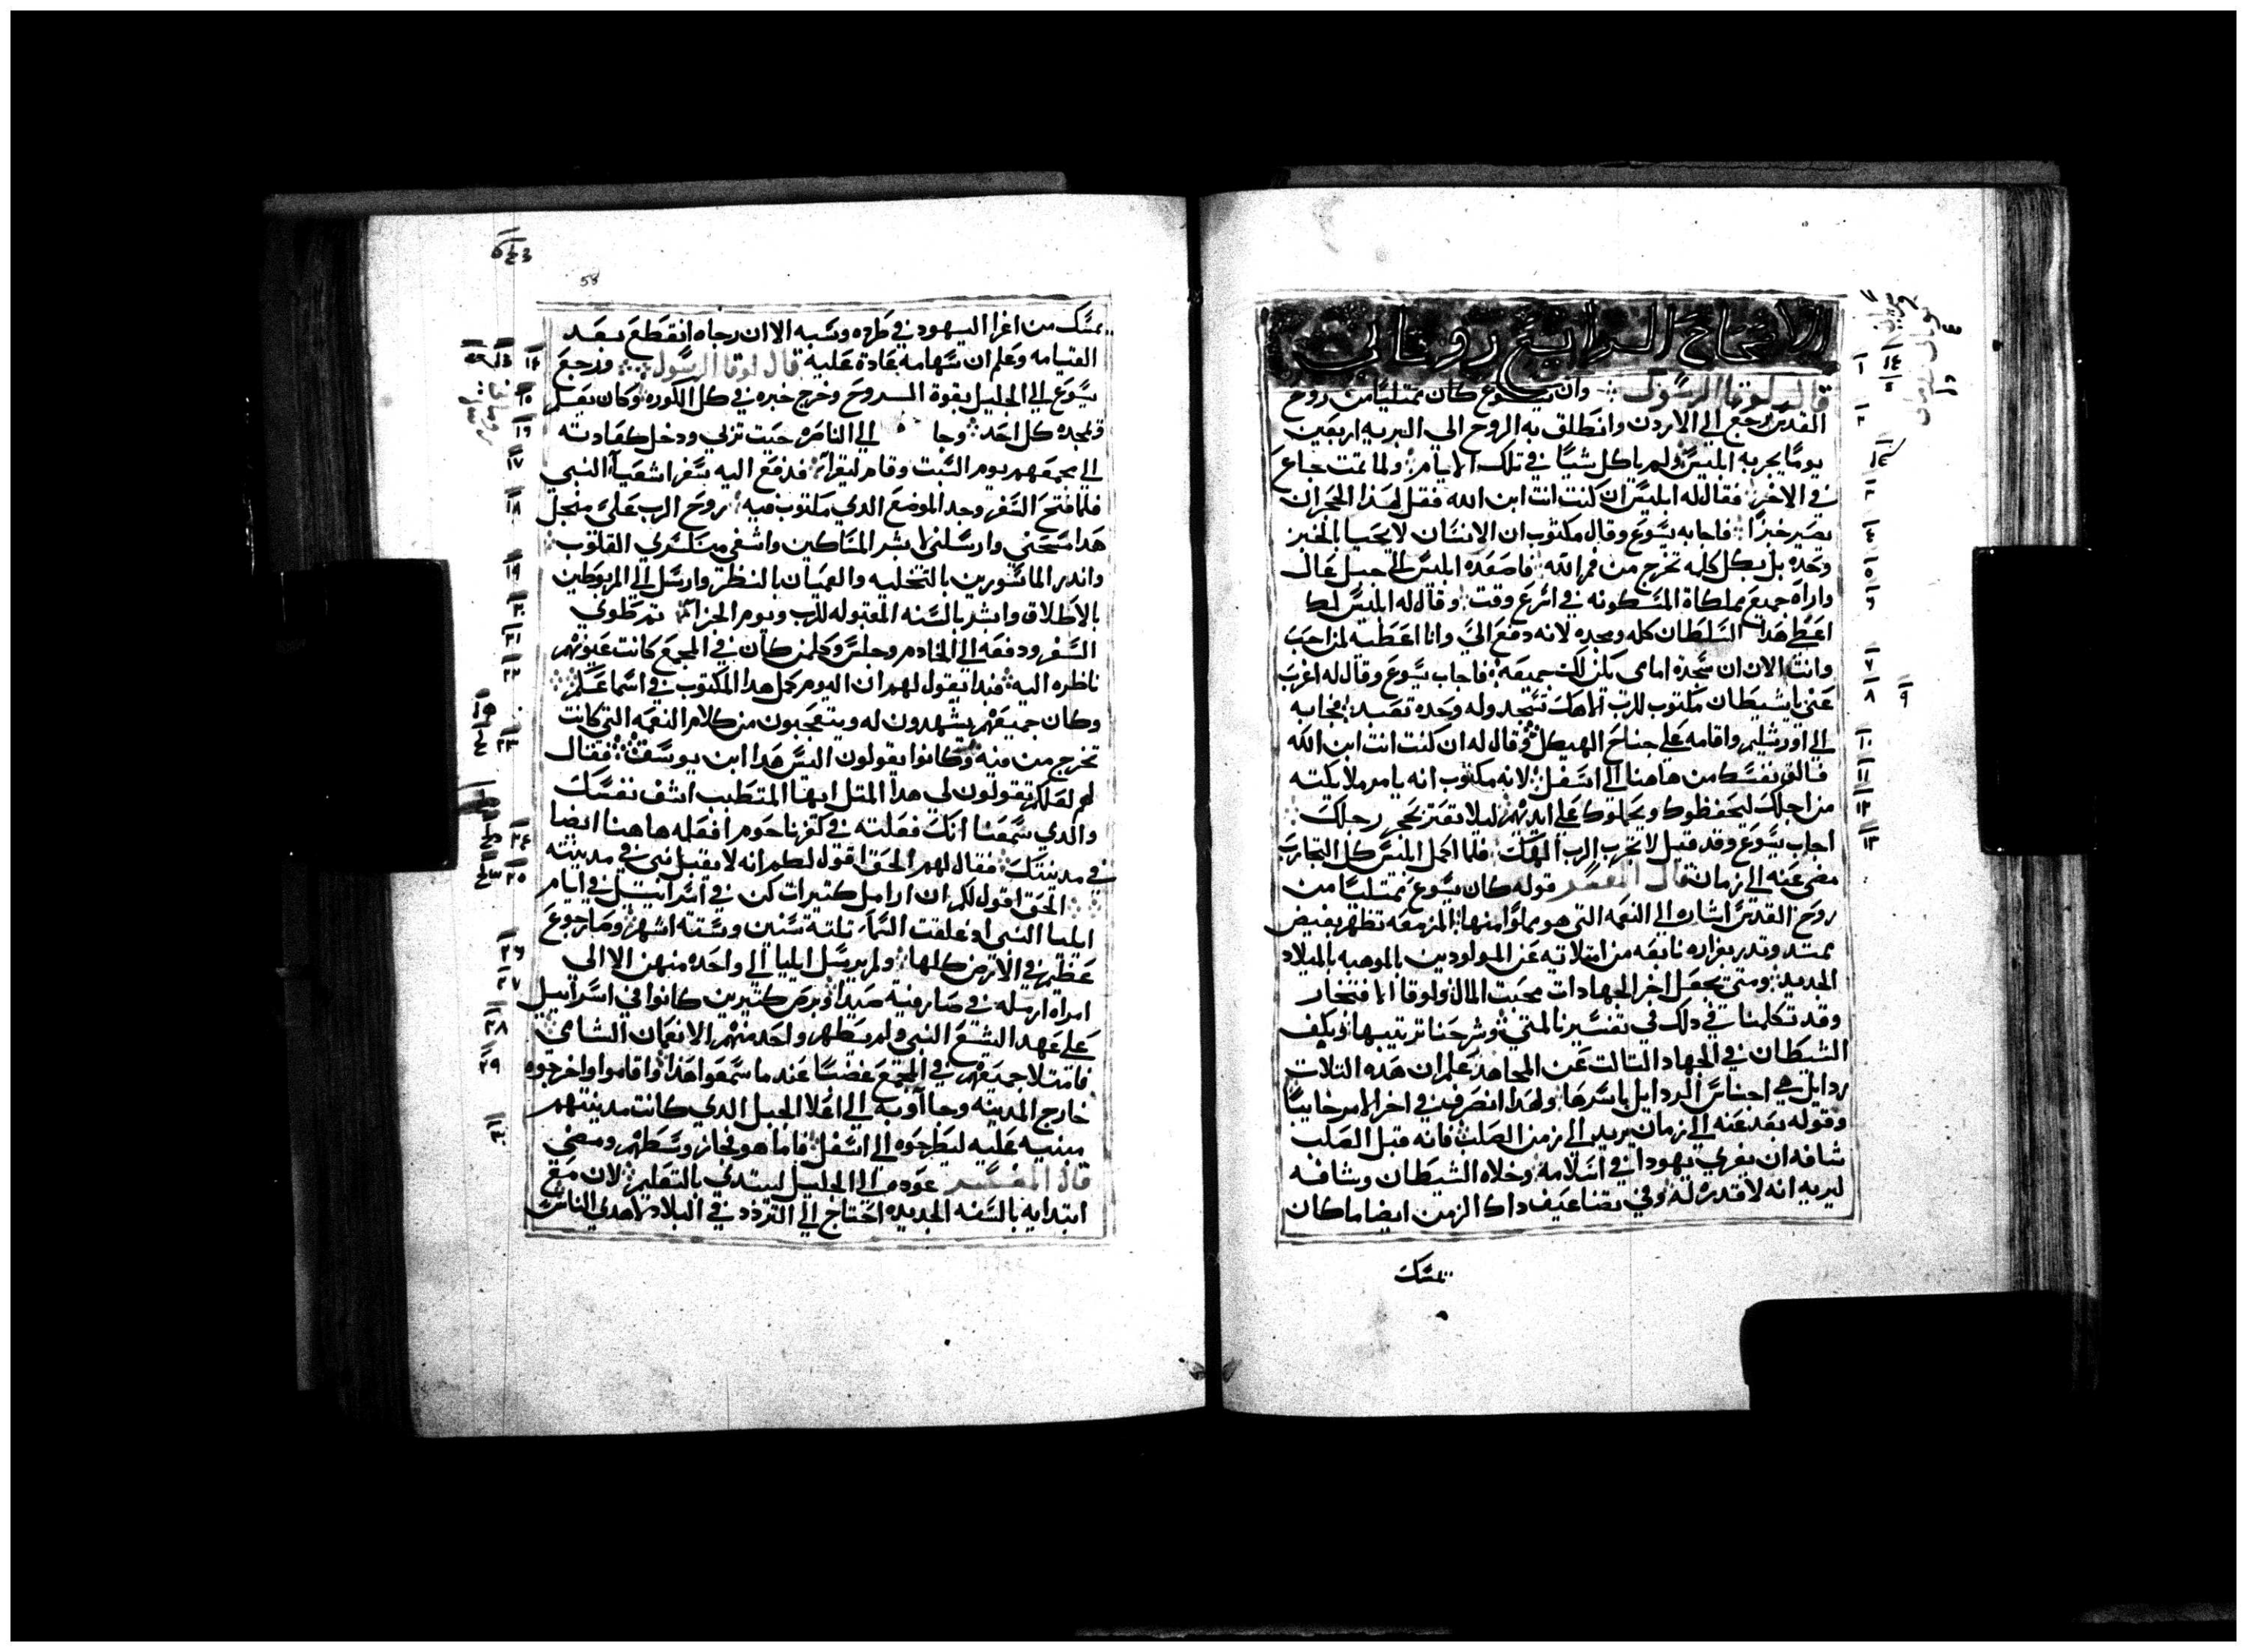 الاصحاح الرابع روماني
قال لوقا الرسول وان يسوع كان ممتليًا من روح
القدس رجع الي الاردن وانطلق به الروح الي البريه اربعين
يومًا يجربه ابليس ولم ياكل شيًا في تلك الايام ولما تمت جاع
في الاخر فقال له ابليس ان كنت انت ابن الله فقل لهذا الحجر ان
يصير خبزًا فاجابه يسوع وقال مكتوب ان الانسان لا يحيا بالخبز
وحده بل بكل كلمه تخرج من فم الله فاصعده ابليس الي جبل عال
واراه جميع مملكاة المسكونه في اسرع وقت وقال له ابليس لك
اعطي هدا السلطان كله ومجده لانه دفع الي وانا اعطيه لمن احب
وانت الان ان سجدة امامي يكن لك جميعه فاجاب يسوع وقال له اغرب
عني يا شيطان مكتوب للرب الاهك تسجد وله وحده تعبد فجا به
الي اورشليم واقامه علي جناح الهيكل وقال له ان كنت انت ابن الله
فالق نفسك من هاهنا الي اسفل لانه مكتوب انه يامر ملايكته
من اجلك ليحفظوك ويحملوك علي ايديهم ليلا تعتر بحجر رجلك
اجاب يسوع وقد قيل لا تجرب الرب الهك فلما اكمل ابليس كل التجارب
مضي عنه الي زمان قال المفسر قوله كان يسوع ممتليًا من
روح القدس اشاره الي النعمه التي هو مملوا منها المزمعه تظهر بفيض
ممتد وتدر بغزاره نابعه من امتلايه عن المولودين بالموهبه بالميلاد
الجديد ومتي يجعل اخر الجهادات محبت المال ولوقا الافتخار
وقد تكلمنا في دلك في تفسيرنا لمتي وشرحنا ترتيبها وبكف
الشيطان في الجهاد التالت عن المجاهد علم ان هده التلات
ردايل هي اجناس الردايل باسرها ولهدا انصرف في اخر الامر خايبًا
وقوله بعد عنه الي زمان يريد الي زمن الصلب فانه قبل الصلب
شافه ان يغري يهودا في اسلامه وخلاه الشيطان وشافه
ليريه انه لا قدره له وفي تضاعيف داك الزمن ايضا ما كان
يمسك
58
يمسك من اغرا اليهود في طرده وسبه الا ان رجاه انقطع بعد
القيامه وعلم ان سهامه عادة عليه قال لوقا الرسول ورجع
يسوع الي الجليل بقوة الروح وخرج خبره في كل الكوره وكان يعلم
ويمجده كل احد وجا الي الناصره حيت تربي ودخل كعادته
الي مجمعهم يوم السبت وقام ليقرا فدفع اليه سفر اشعيا النبي
فلما فتح السفر وجد الموضع الدي مكتوب فيه روح الرب علي من اجل
هدا مسحني وارسلني لابشر المساكين واشفي منكسري القلوب
واندر الماسورين بالتخليه والعميان بالنظر وارسل الي المربوطين
بالاطلاق وابشر بالسنه المقبوله للرب ويوم الجزا تم طوي
السفر ودفعه الي الخادم وجلس وكلمن كان في المجمع كانت عيونهم
ناظره اليه فبدا يقول لهم ان اليوم كمل هدا المكتوب في اسماعكم
وكان جميعهم يشهدون له ويتعجبون من كلام النعمه التي كانت
تخرج من فيه وكانوا يقولون اليس هدا ابن يوسف فقال
لهم لعلكم تقولون لي هدا المتل ايها المتطبب اشف نفسك
والدي سمعنا انك فعلته في كفرناحوم افعله هاهنا ايضا
في مدينتك فقال لهم الحق اقول لكم انه لا يقبل نبي في مدينته
الحق اقول لكم ان ارامل كتيرات كن في اسراييل في ايام
ايليا النبي اد غلقت السما تلته سنين وسته اشهر وصار جوع
عظيم في الارض كلها ولم يرسل ايليا الي واحده منهن الا الي
امراه ارمله في صارفيه صيدا وبرص كتيرين كانوا في اسراييل
علي عهد اليشع النبي ولم يطهر واحد منهم الا نعمان الشامي
فامتلا جميعهم في المجمع غضبًا عند ما سمعوا هدا واقاموا واخرجوه
خارج المدينه وجاآو به الي اعلا الجبل الدي كانت مدينتهم
مبنيه عليه ليطرحوه الي اسفل فاما هو فجاز وسطهم ومضي
قال المفسر عوده الي الجليل ليبتدي بالتعليم لان مع
ابتدايه بالسنه الجديده احتاج الي التردد في البلاد لهدي الناس